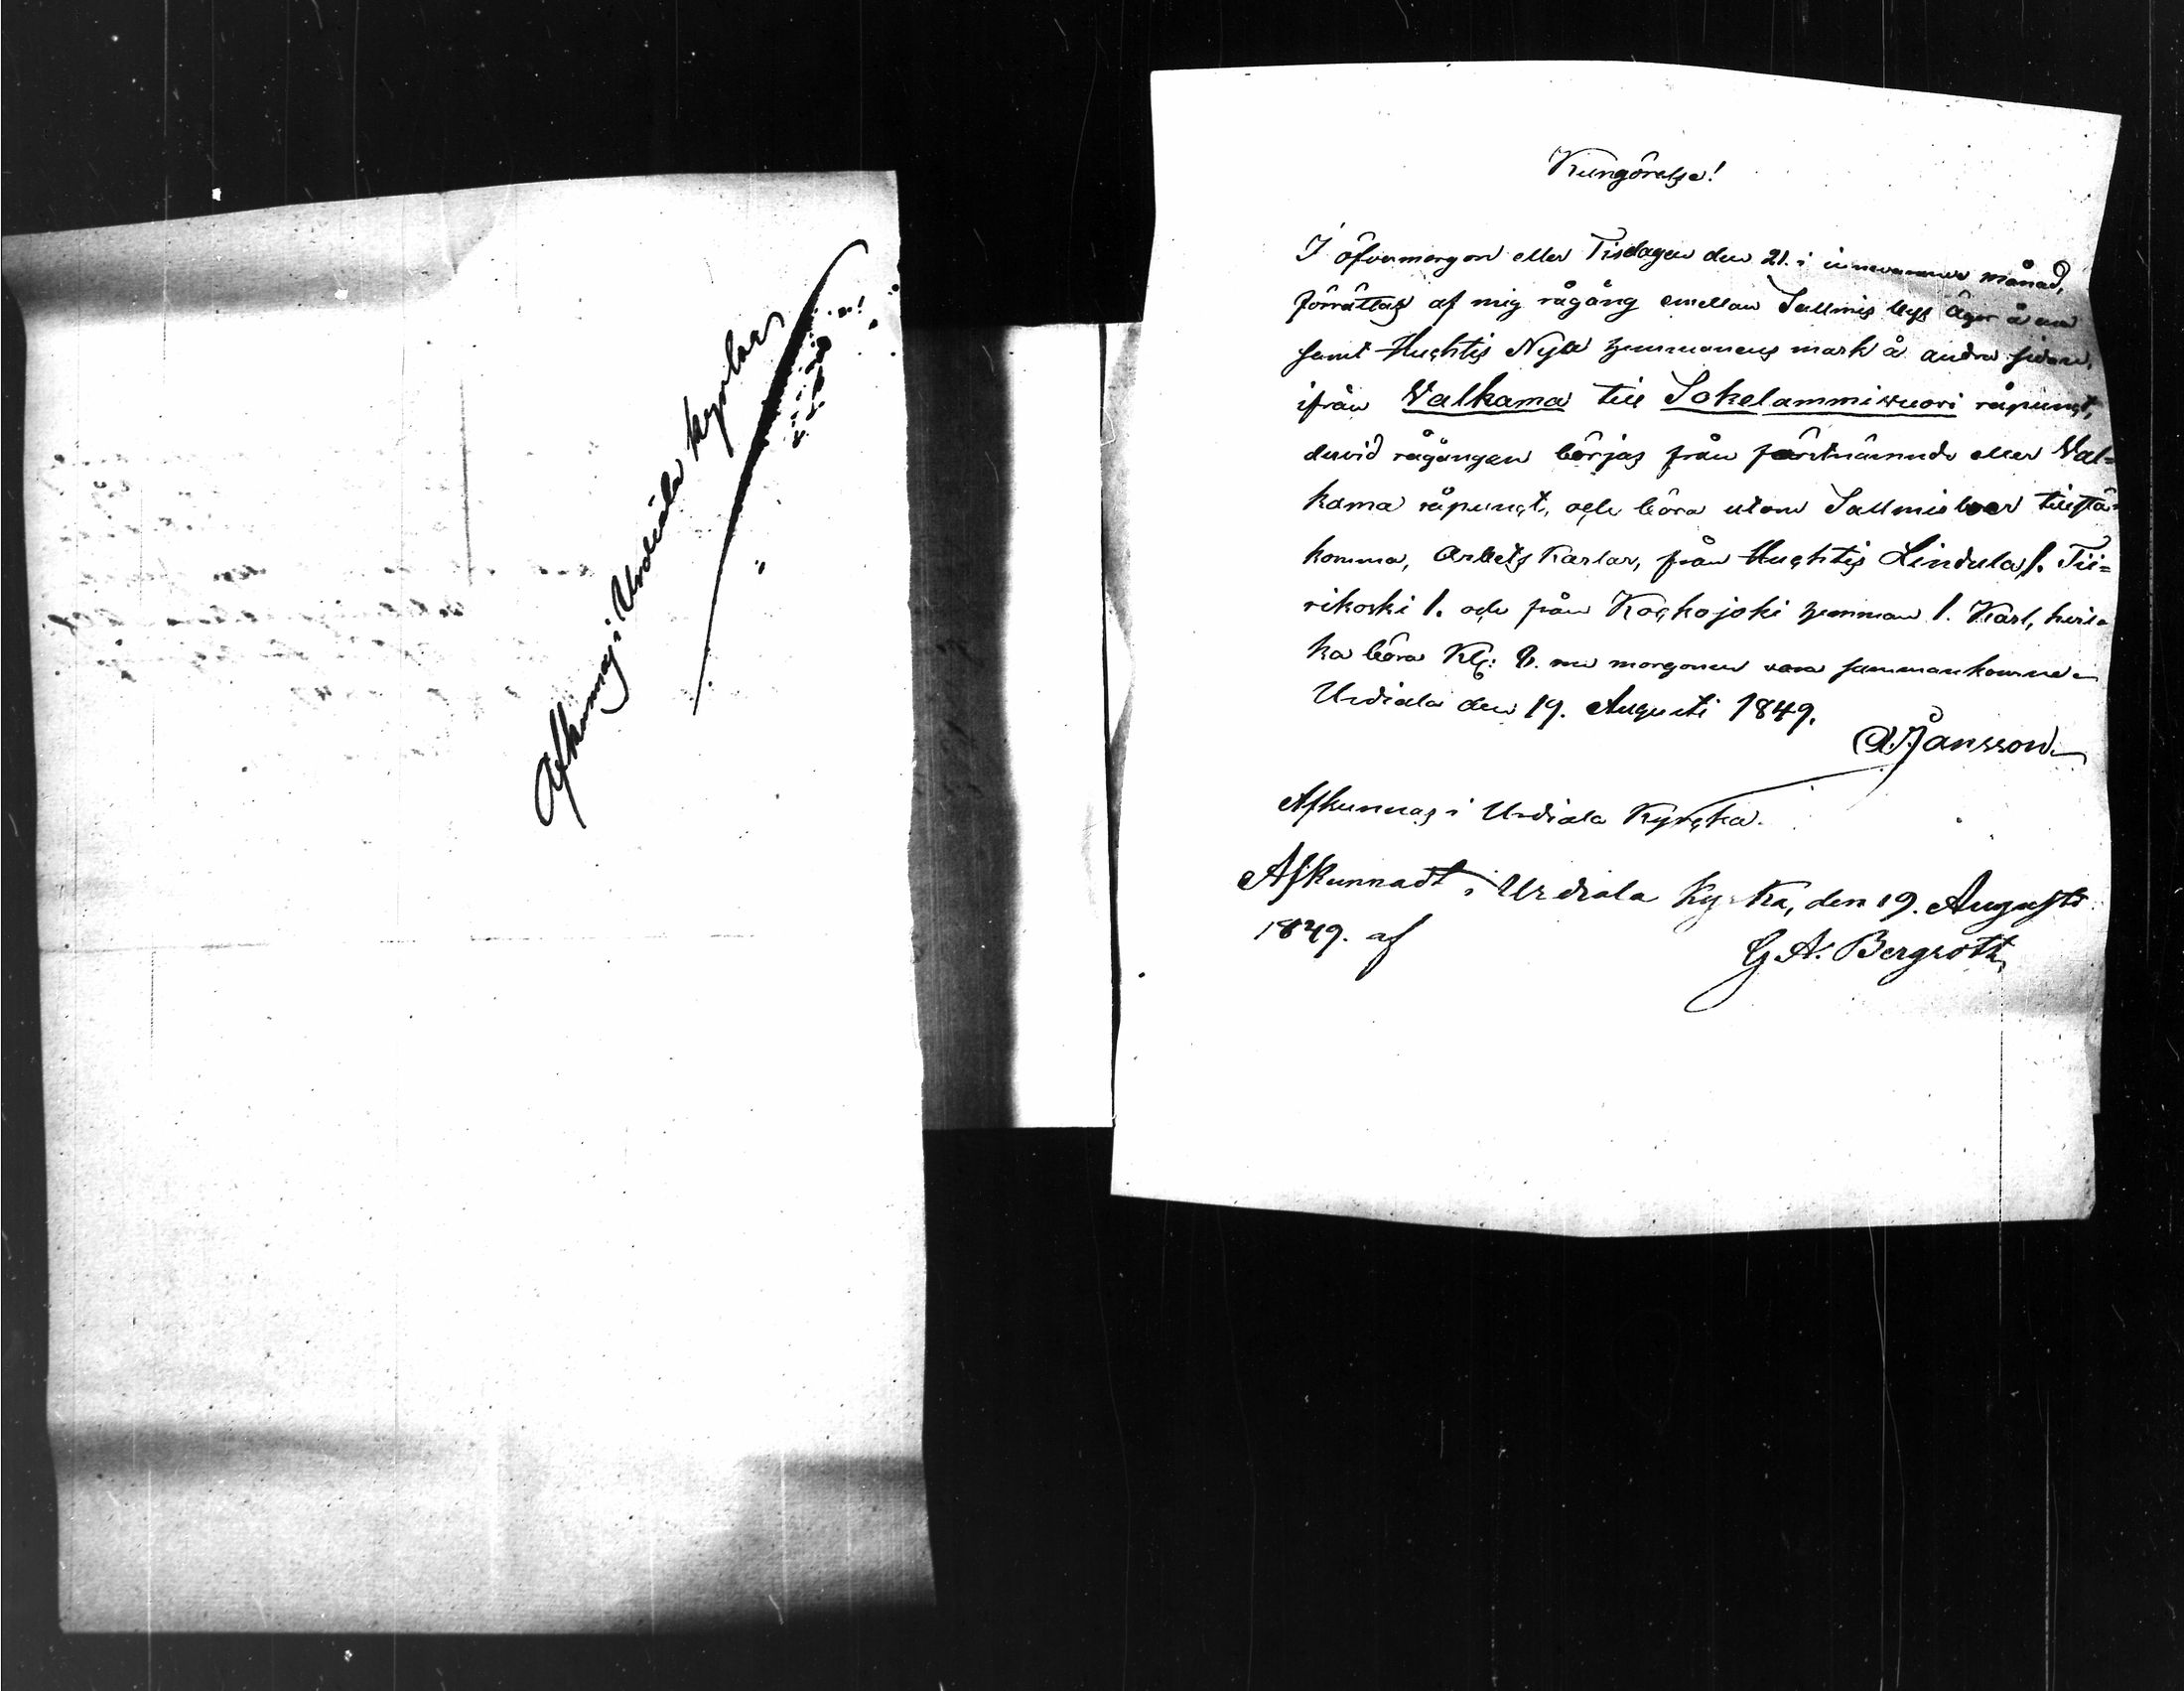 Afkunnas i Urdiala kyrka
Kungörelse!
I öfvermorgon eller Tisdagen den 21. i innevarande månad,
förrättas af mig rågång emellan Salmis bys ägor å ena
samt Huhtis Nya hemmanens mark å andra sidan,
ifrån Valkama till Sokelammiwuori råpunct,
dervid rågången börjas från förstnämnde eller Val=
kama råpunct, och böra utom Salmis boer tillstä=
komma, Arbets karlar, från Huhtis Lindula 1. Tii=
rikoski 1. och från Koskojoki hemman 1. Karl, hvil=
ka böra Kl: 8. om morgonen vara sammankomne
Urdiala den 19. Augusti 1849.
Jansson
Afkunnas i Urdiala Kyrka.
Afkunnadt i Urdiala Kyrka, den 19. Augusti
1849. af
G A. Bergroth